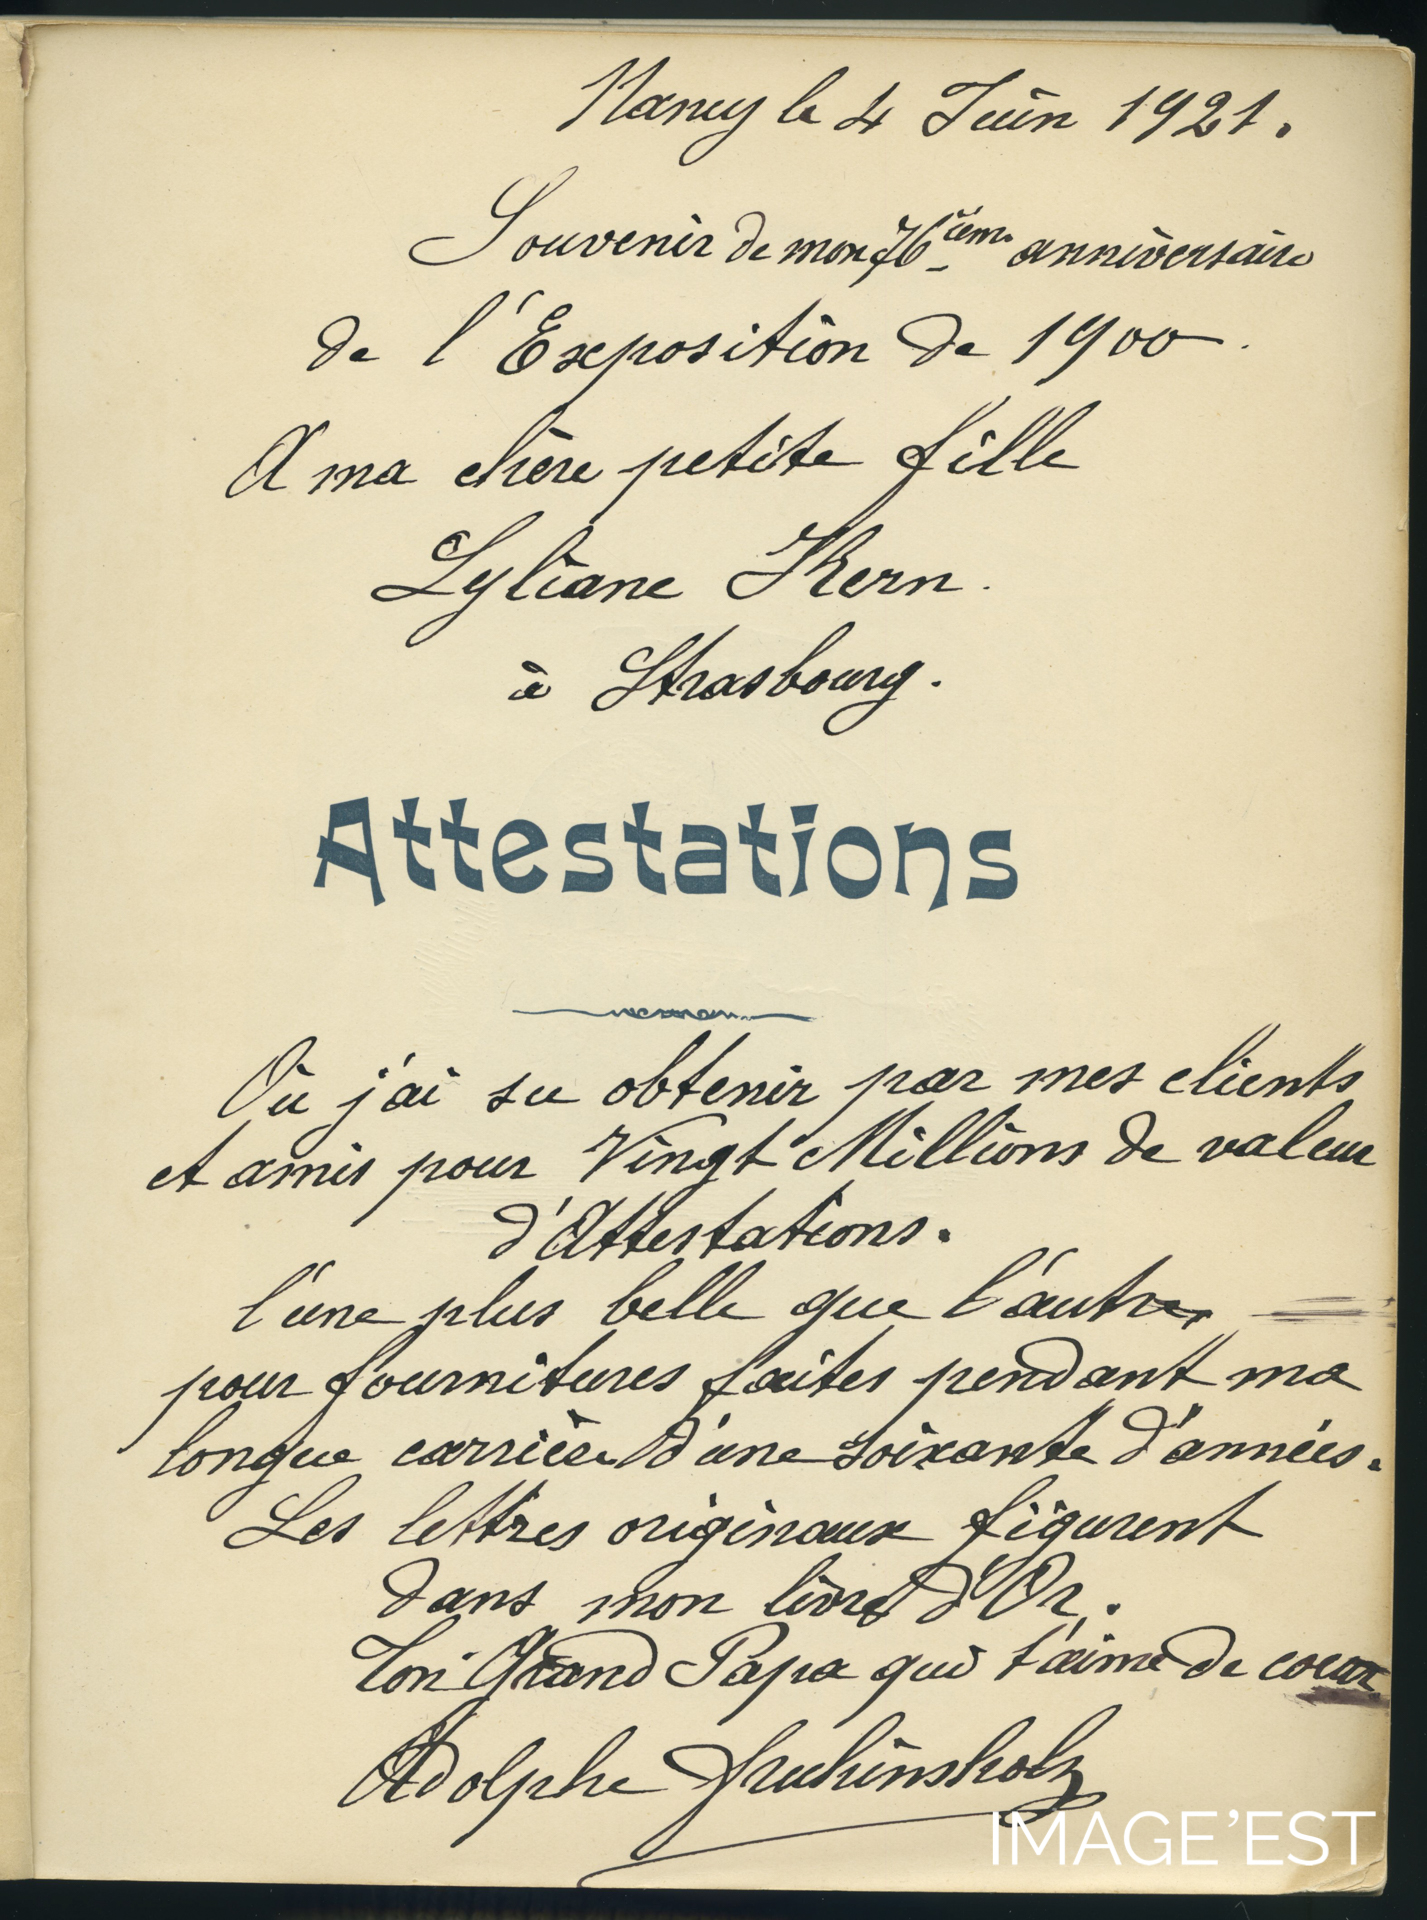 Nancy le 4 Juin 1921.
Souvenir de mon 76ième anniversaire
de l'Exposition de 1900.
A ma chère petite fille
Lyliane Kern.
à Strasbourg.
Attestations
Où j'ai su obtenir par mes clients
et amis pour Vingt Millions de valeur
d'Attestations.
l'une plus belle que l'autre,
pour fournitures faites pendant ma
longue carrière d'une soixante d'années.
Les lettres originaux figurent
dans mon livre d'Or.
Ton Grand Papa qui t'aime de coeur
Adolphe Fruhinsholz
IMAGE'EST